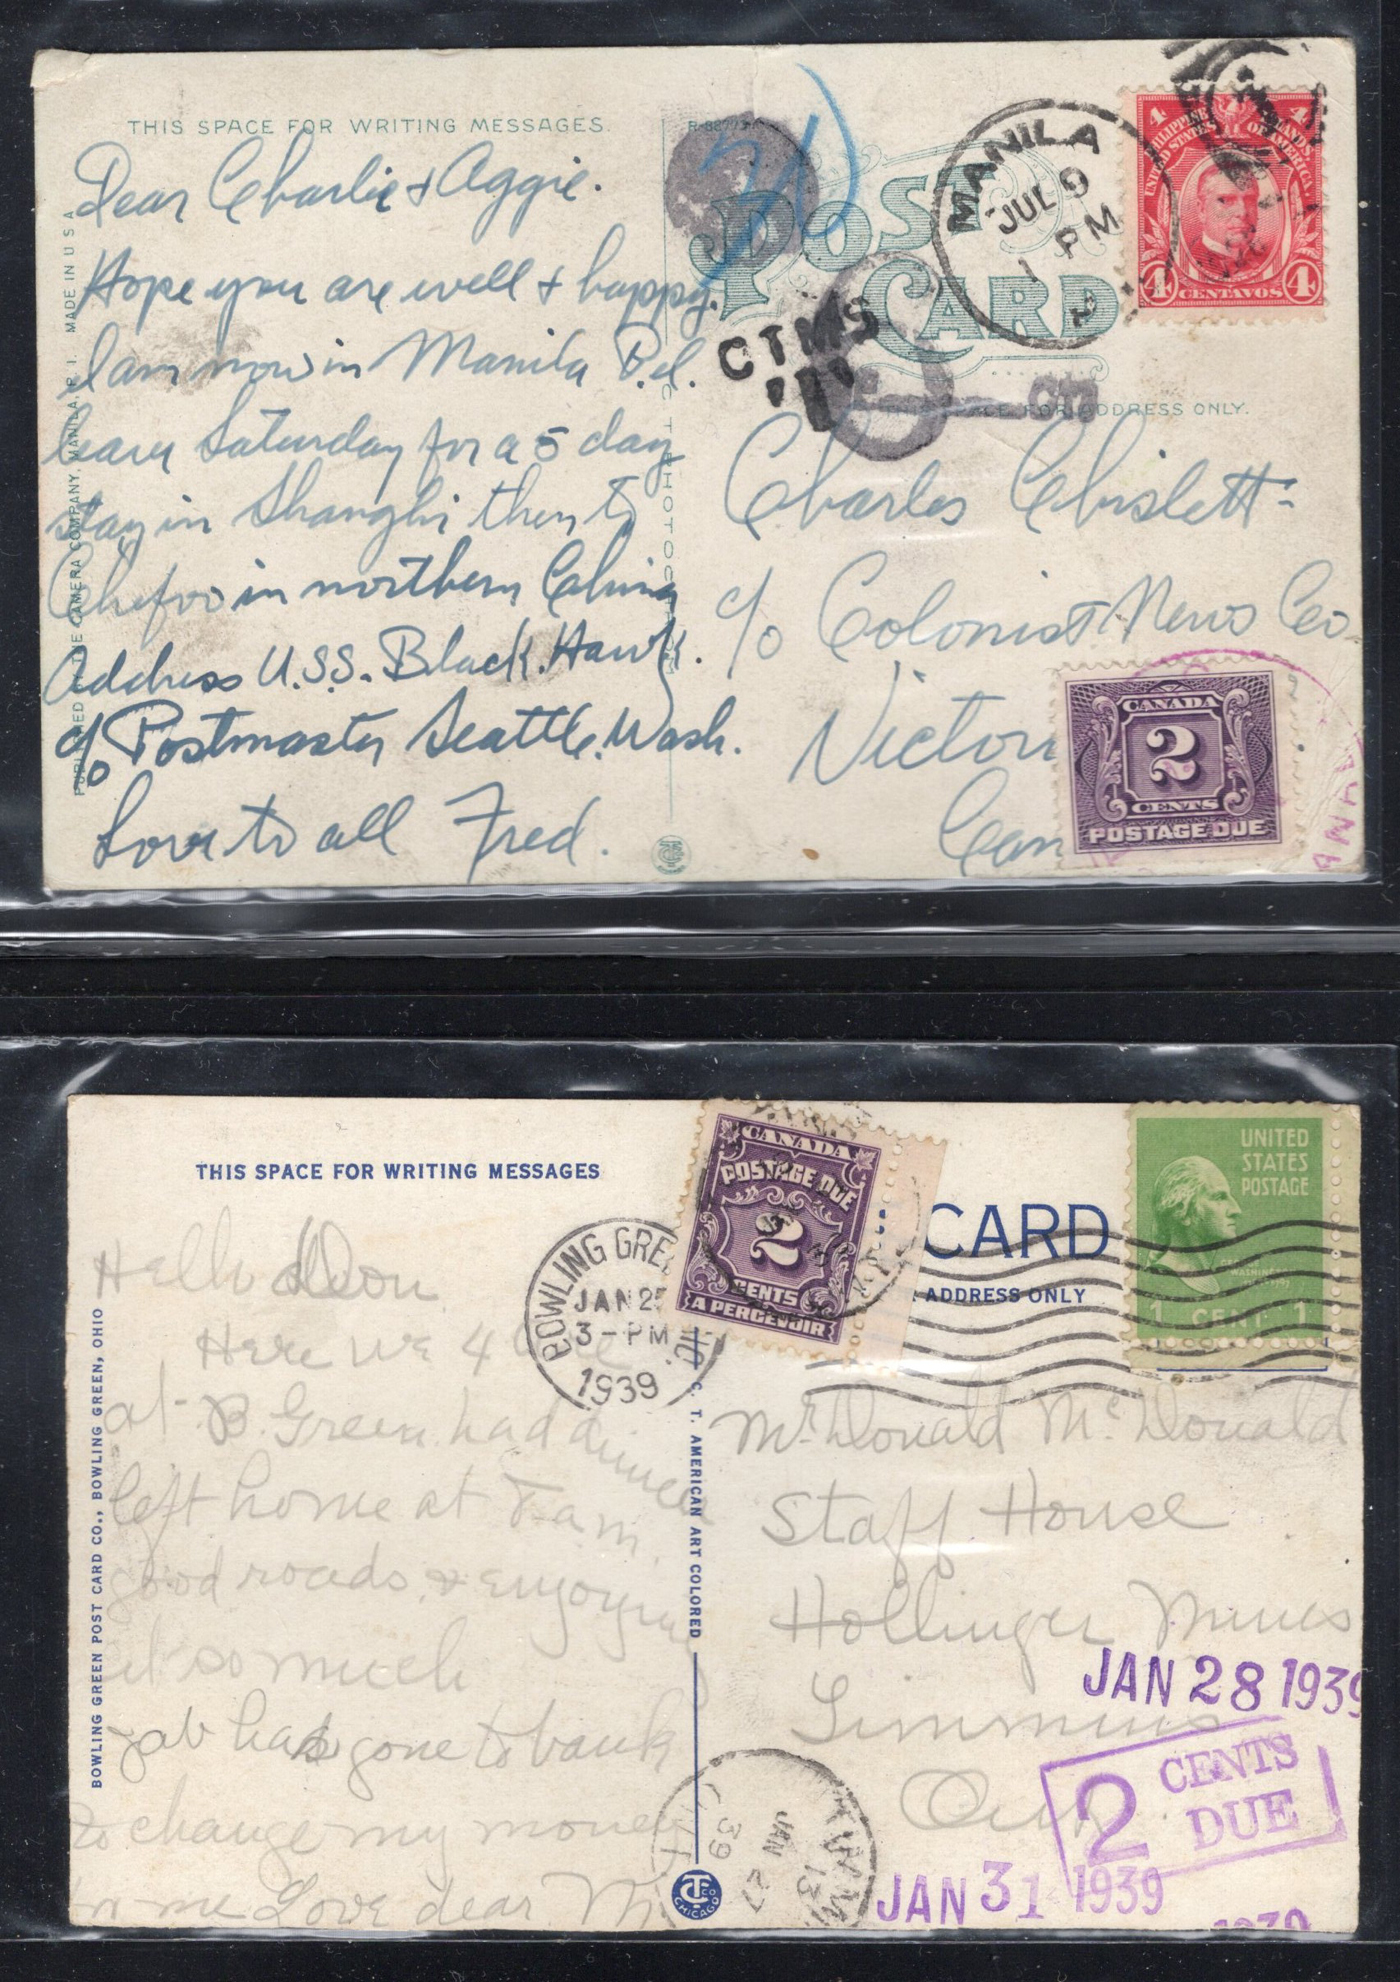 THIS SPACE FOR WRITING MESSAGES.
Dear Charlie & Aggie.
Hope you are well & happy.
I am now in Manila P.I.
leave Saturday for a 5 day
stay in Shanghi then to
Chefoo in northern China
Address U.S.S. Black Hawk.
c/o Postmaster Seattle, Wash.
Love to all Fred.
MADE IN U S A
C T PHOTOC
POST
CARD
MANILA
JUL 9
1 PM
PHILIPPINE ISLANDS
UNITED STATES OF AMERICA
4 CENTAVOS 4
CTMS
CTS
SPACE FOR ADDRESS ONLY.
Charles Chislett
c/o Colonist News Co
Victori
Can
CANADA
2
CENTS
POSTAGE DUE
THIS SPACE FOR WRITING MESSAGES
Hello Don
Here we 4
at B. Green had dinner
left home at
good roads & enjoying
it so much
has gone to bank
to change my money
me Love dear M
BOWLING GREEN POST CARD CO., BOWLING GREEN, OHIO
C. T. AMERICAN ART COLORED
BOWLING GREE
JAN 25
3-PM
1939
CANADA
POSTAGE DUE
2
CENTS
A PERCEVOIR
CARD
ADDRESS ONLY
UNITED
STATES
POSTAGE
1 CENT 1
Mr. Donald McDonald
Staff House
Hollinger Mines
Timmins
Ont
JAN 28 1939
2 CENTS
DUE
JAN 31 1939
1939
JAN 27
39
CT CO
CHICAGO